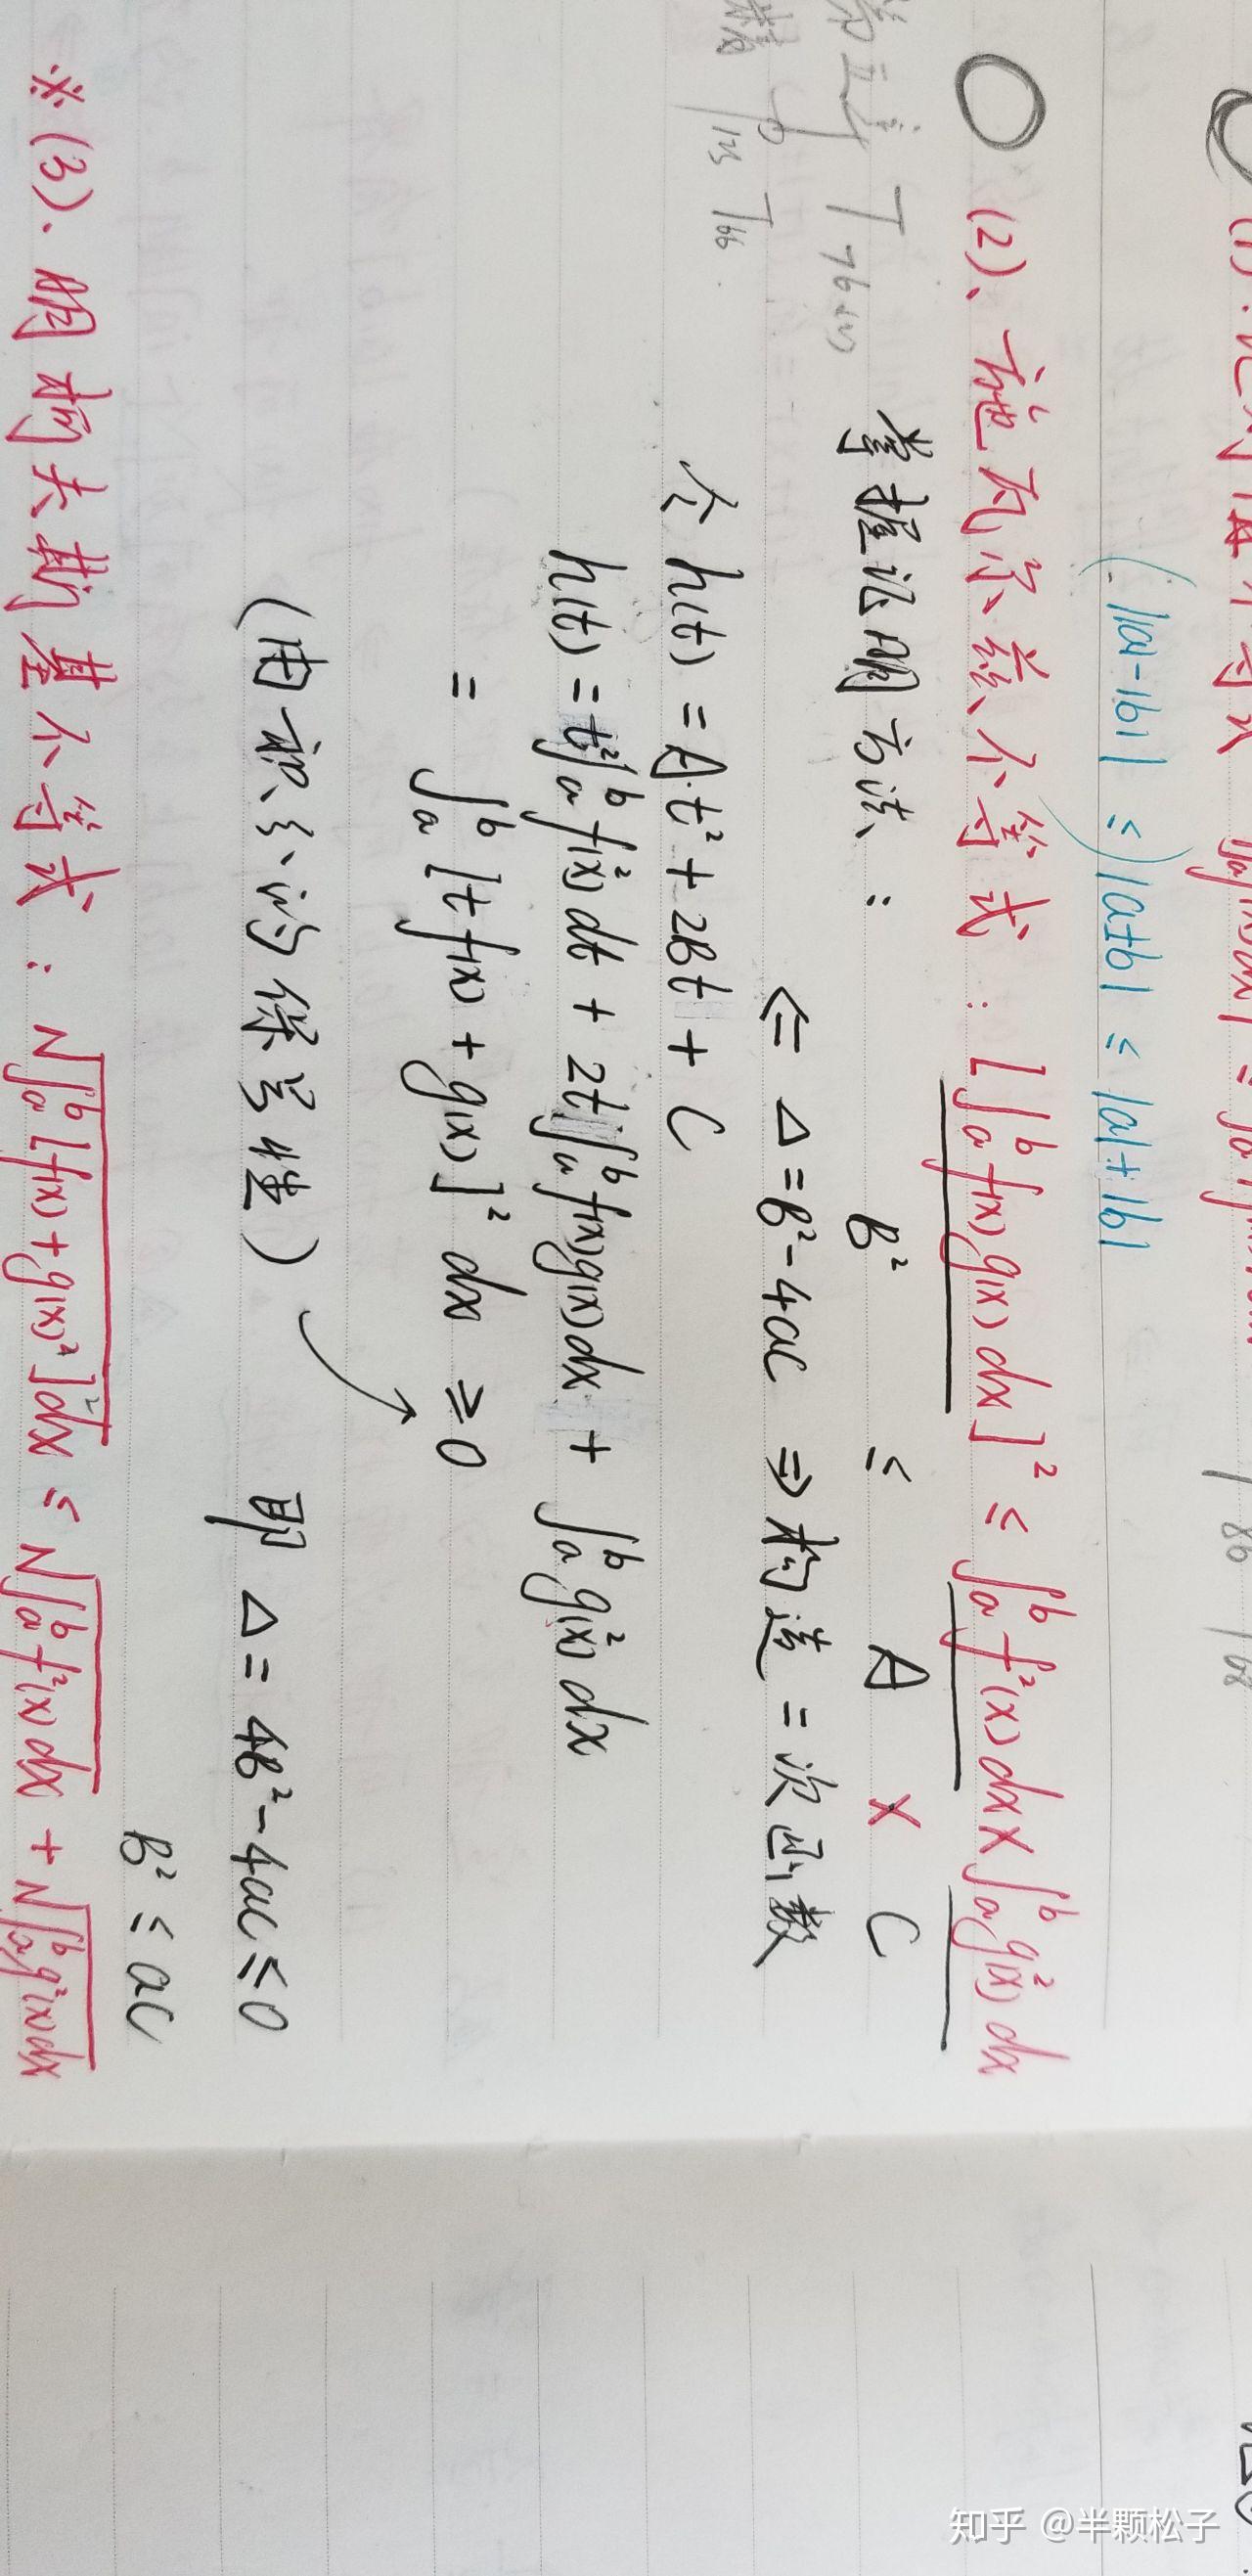 (||a|-|b|| ≤) |a±b| ≤ |a|+|b|
(2)、施瓦尔兹不等式：[∫ₐᵇ f(x)g(x)dx]² ≤ ∫ₐᵇ f²(x)dx × ∫ₐᵇ g²(x)dx
掌握证明方法： B² ≤ A × C
⇐ Δ=B²-4ac ⇒ 构造二次函数
令 h(t) = A·t² + 2Bt + C
h(t) = t²∫ₐᵇ f²(x)dt + 2t∫ₐᵇ f(x)g(x)dx + ∫ₐᵇ g²(x)dx
= ∫ₐᵇ [t f(x) + g(x)]² dx ≥ 0
(由积分的保号性) 即 Δ = 4B²-4ac ≤ 0
B² ≤ ac
※(3)、闵柯夫斯基不等式：√∫ₐᵇ[f(x)+g(x)²]²dx ≤ √∫ₐᵇf²(x)dx + √∫ₐᵇg²(x)dx
知乎 @半颗松子